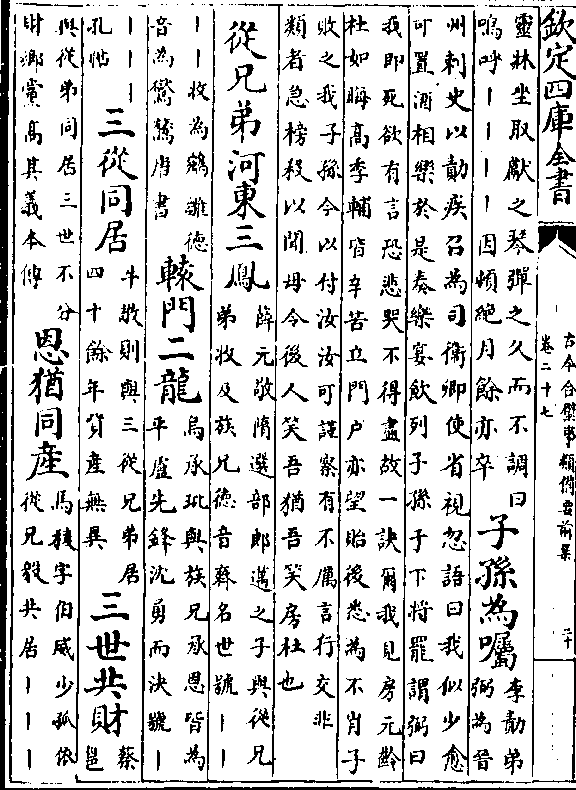 欽定四庫全書
古今合璧事類備要前集
卷二十七
二十
靈牀坐取獻之琴彈之久而不調曰
嗚呼||||因頓絶月餘亦卒
子孫為囑
李勣弟
弼為晉
州刺史以勣疾召為司衛卿使省視忽語曰我似少愈
可置酒相樂於是奏樂宴飲列子孫于下將罷謂弼曰
我即死欲有言恐悲哭不得盡故一訣爾我見房元齡
杜如晦高季輔皆辛苦立門户亦望貽後悉為不肖子
敗之我子孫今以付汝汝可謹察有不厲言行交非
類者急榜殺以聞毋令後人笑吾猶吾笑房杜也
從兄弟河東三鳳
薛元敬隋選部郎邁之子與從兄
弟收及族兄德音齊名世號||
||收為鵷雛德
音為鸑鷟唐書
轅門二龍
烏承玼與族兄承恩皆為
平盧先鋒沈勇而決號|
|||
孔帖
三從同居
牛敬則與三從兄弟居
四十餘年資産無異
三世共財
蔡
邕
與從弟同居三世不分
財鄉黨高其義本傳
恩猶同産
馬稜字伯威少孤依
從兄毅共居|||